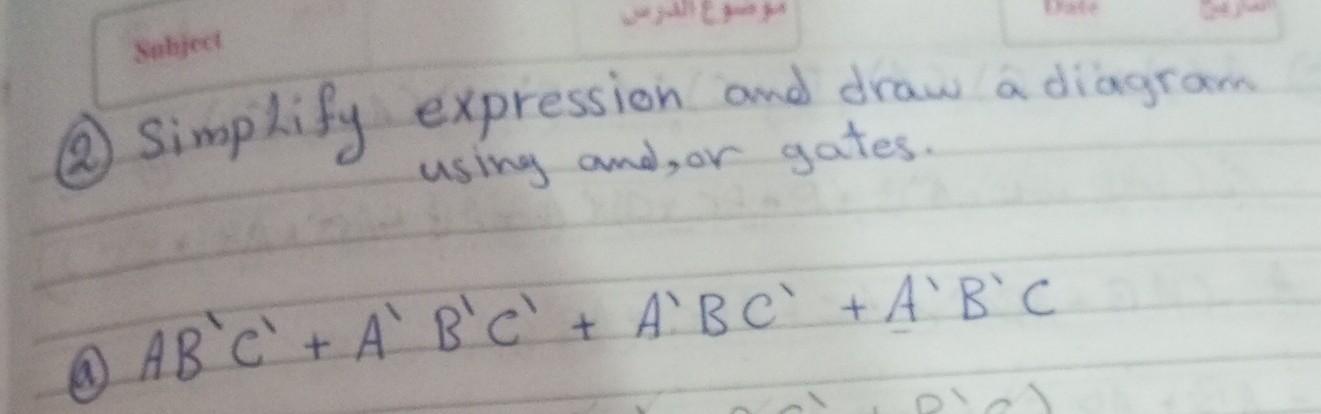 Subject موضوع الدرس Date التاريخ
② Simplify expression and draw a diagram
using and, or gates.
ⓐ AB`C` + A` B`C` + A`BC` + A`B`C